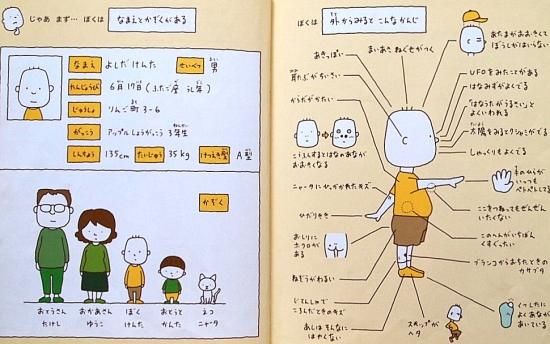 じゃあ まず… ぼくは なまえとかぞくがある
なまえ よしだけんた せいべつ 男
たんじょうび 6月17日(ふたご座 うし年)
じゅうしょ りんご町3-6
がっこう アップルしょうがっこう 3年生
しんちょう 135cm たいじゅう 35kg けつえき型 A型
かぞく
おとうさん たけし
おかあさん ゆうこ
ぼく けんた
おとうと かんた
ネコ ニャータ
ぼくは 外からみると こんなかんじ
あきっぽい
まいあさ ねぐせがつく
あたまがおおきくて
ぼうしがはいらない
耳たぶがちいさい
UFOをみたことがある
はなみずがよくでる
「はなうたがうるさい」と
よくいわれる
からだがかたい
太陽をみるとクシャミがでる
こうふんするとはなのあなが
おおきくなる
しゃっくりもよくでる
ニャータにひっかかれたキズ
手のひらが
いつも
ベトベトしてる
ひだりきき
ここをつねってもぜんぜん
いたくない
おしりに
ホクロが
ある
このへんがいちばん
くすぐったい
ねぞうがわるい
ブランコからおちたときの
カサブタ
じてんしゃで
ころんだときのキズ
あしはそんなに
はやくない
スキップが
ヘタ
くつしたに
よくあなが
あいている